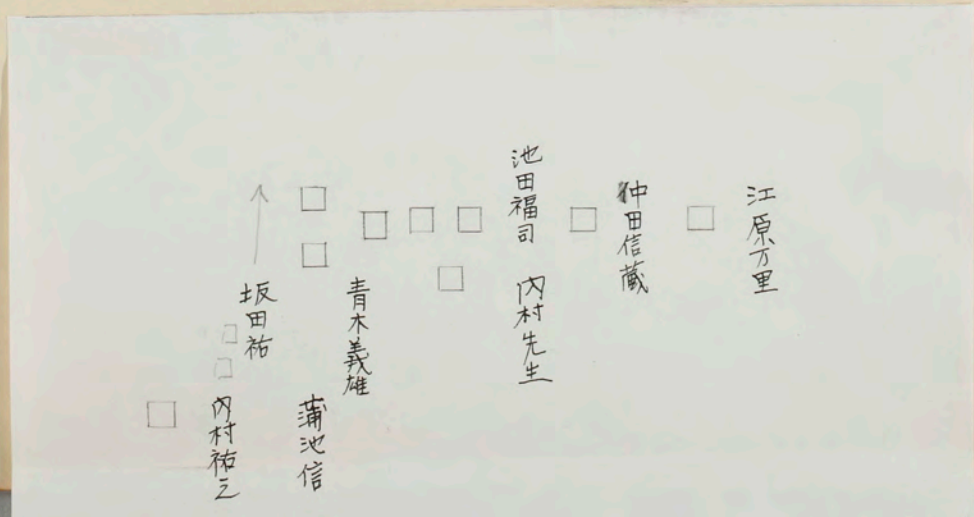 江原万里
仲田信蔵
池田福司
内村先生
青木義雄
蒲池信
坂田祐
内村祐之